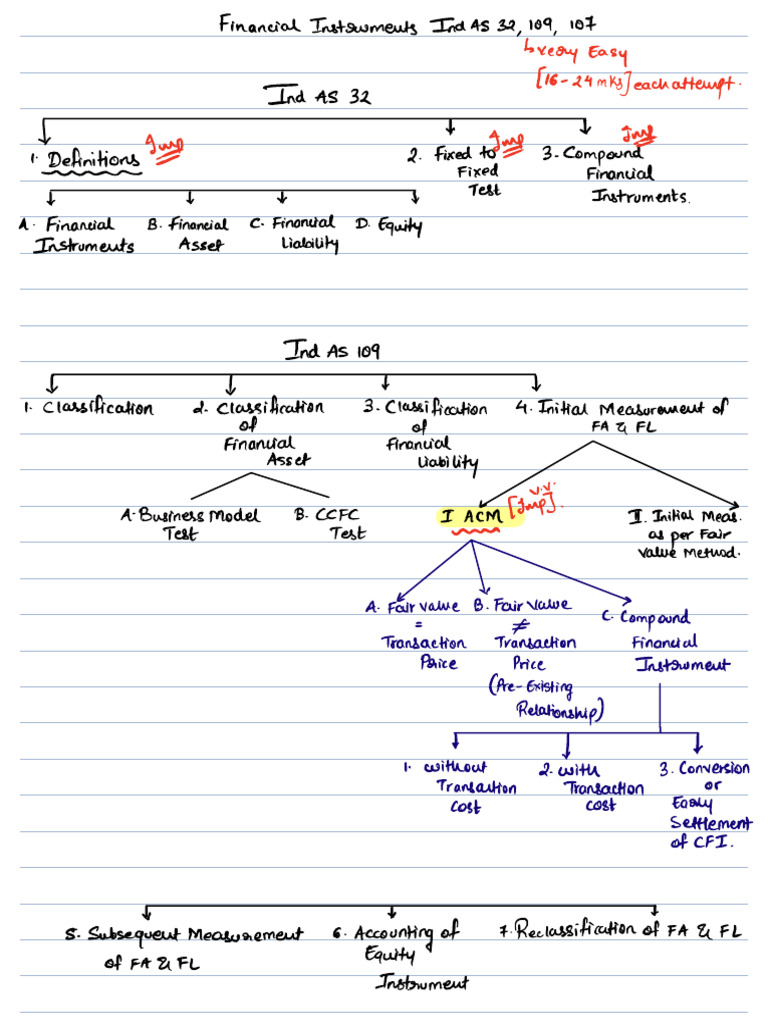 Financial Instruments Ind AS 32, 109, 107
↳ very Easy
[16-24 mks] each attempt.
Ind AS 32
1. Definitions Imp
2. Fixed to Imp
Fixed
Test
3. Compound Imp
Financial
Instruments.
A. Financial
Instruments
B. Financial
Asset
C. Financial
Liability
D. Equity
Ind AS 109
1. Classification
2. Classification
of
Financial
Asset
3. Classification
of
Financial
Liability
4. Initial Measurement of
FA & FL
A. Business Model
Test
B. CCFC
Test
I ACM [V.V. Imp].
II. Initial Meas.
as per Fair
Value Method.
A. Fair value
=
Transaction
Price
B. Fair Value
≠
Transaction
Price
(Pre-Existing
Relationship)
C. Compound
Financial
Instrument
1. without
Transaction
Cost
2. with
Transaction
Cost
3. Conversion
or
Early
Settlement
of CFI.
5. Subsequent Measurement
of FA & FL
6. Accounting of
Equity
Instrument
7. Reclassification of FA & FL